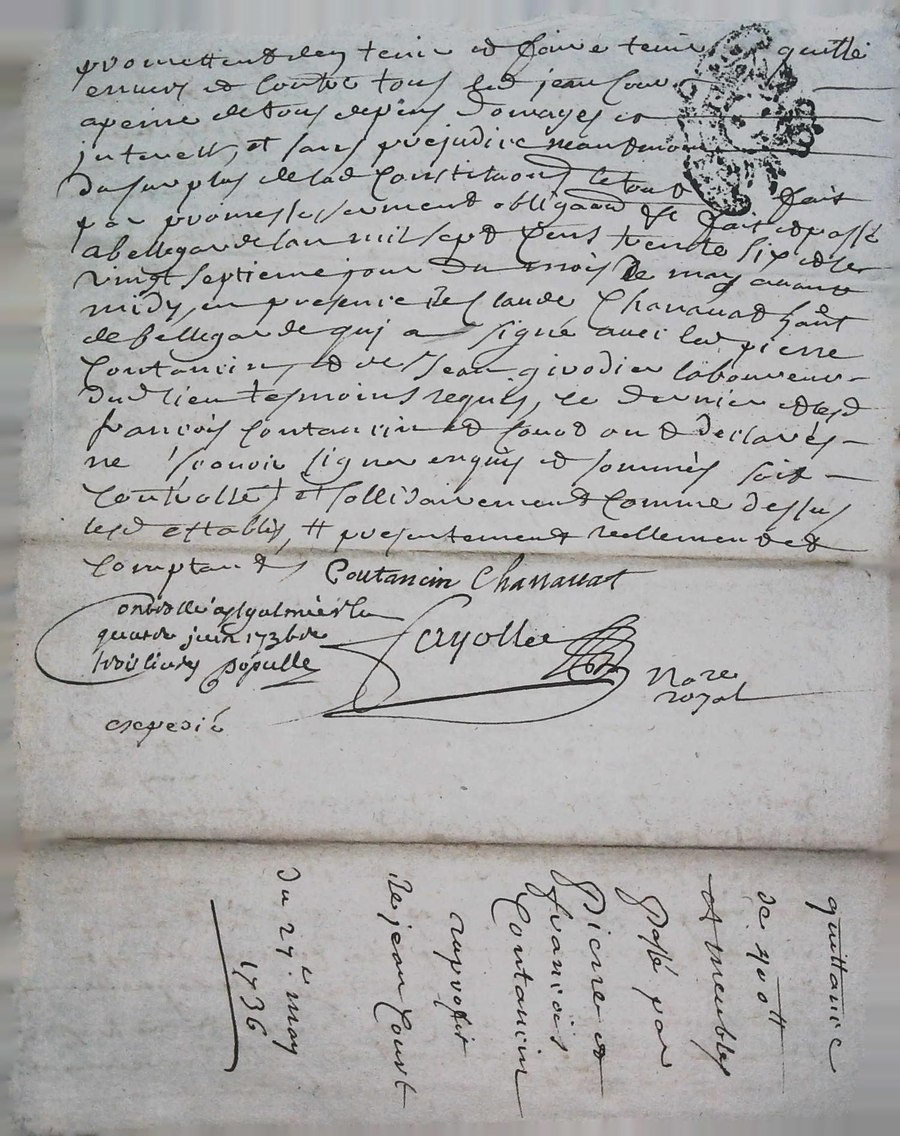 promettent den tenir et faire tenir quitte
envers et contre tous led jean Cour
a peine de tous depens domages et
interests, et sans prejudice neanmoins
du surplus de lad Constitution le tout fait
par promesse serment obligaon &c fait et passé
a bellegarde lan mil sept Cens trente six et le
vingt septieme jour du mois de may avant
midy, en presence de Claude Chanauat
de bellegarde qui a signé avec led pierre
Coutancin, et de Jean givodier laboureur
dud lieu tesmoins requis, ce dernier et led
francois Coutancin et Court ont declarés
ne scavoir signer enquis et sommés soit
Controllé † et sollidairement comme dessus
lesd establis, # presentement reellement et
Comptant
Coutancin Chanauat
Controllé a st galmier le
quatre juin 1736 de
trois livres
Nore
royal
expedié
quittance
de 400 #
et meubles
Passé par
Pierre et
francois
Coutancin
au profit
de jean Court
du 27e may
1736